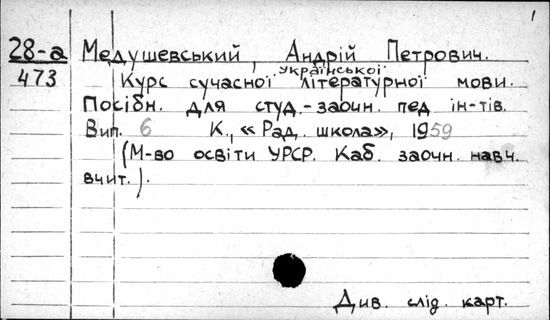 1
28-а Медушевський, Андрій Петрович.
473 Курс сучасної української літературної мови.
Посібн. для студ.-заочн. пед ін-тів.
Вип. 6 К., «Рад. школа», 1959
(М-во освіти УРСР. Каб. заочн. навч.
вчит.).
Див. слід. карт.